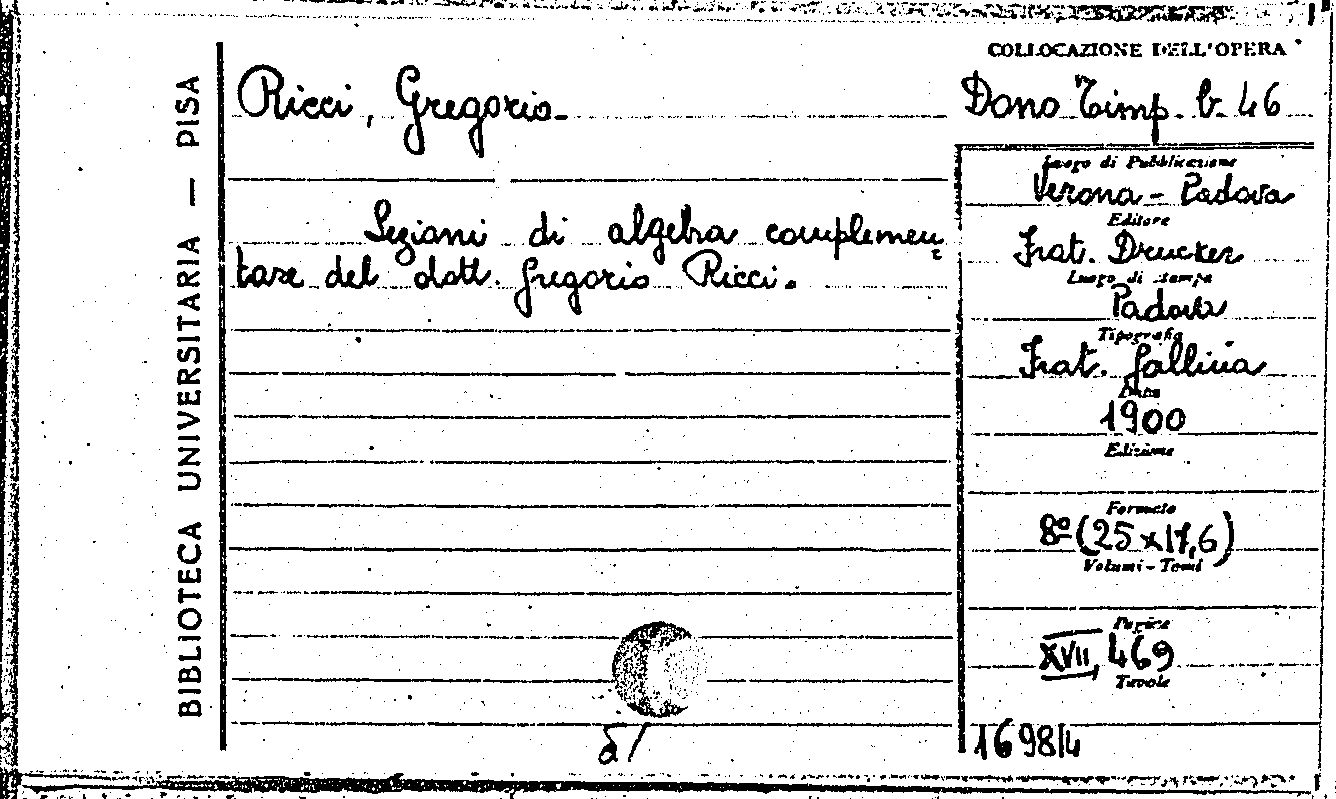 COLLOCAZIONE DELL'OPERA
Dono Timp. b. 46
BIBLIOTECA UNIVERSITARIA — PISA
Ricci, Gregorio.
Lezioni di algebra complemen-
tare del dott. Gregorio Ricci.
Luogo di Pubblicazione
Verona - Padova
Editore
Frat. Drucker
Luogo di stampa
Padova
Tipografia
Frat. Gallina
Anno
1900
Edizione
Formato
8º (25 x 17,6)
Volumi - Tomi
Pagine
XVII, 469
Tavole
1698/4